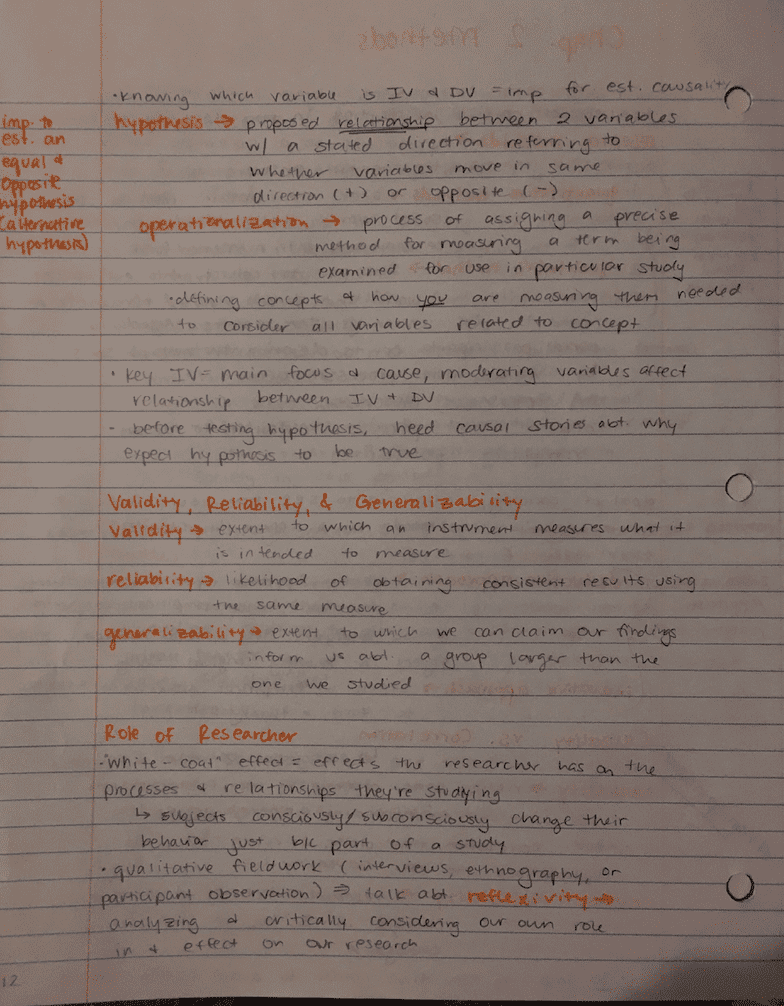 • knowing which variable is IV & DV = imp for est. causality
imp. to
est. an
equal &
opposite
hypothesis
(alternative
hypothesis)
hypothesis → proposed relationship between 2 variables
w/ a stated direction referring to
whether variables move in same
direction (+) or opposite (-)
operationalization → process of assigning a precise
method for measuring a term being
examined for use in particular study
• defining concepts & how you are measuring them needed
to consider all variables related to concept
• key IV = main focus & cause, moderating variables affect
relationship between IV + DV
- before testing hypothesis, need causal stories abt. why
expect hypothesis to be true
Validity, Reliability, & Generalizability
validity → extent to which an instrument measures what it
is intended to measure
reliability → likelihood of obtaining consistent results using
the same measure
generalizability → extent to which we can claim our findings
inform us abt. a group larger than the
one we studied
Role of Researcher
• "white-coat" effect = effects the researcher has on the
processes & relationships they're studying
↳ subjects consciously/subconsciously change their
behavior just b/c part of a study
• qualitative fieldwork (interviews, ethnography, or
participant observation) ⇒ talk abt. reflexivity →
analyzing & critically considering our own role
in & effect on our research
12